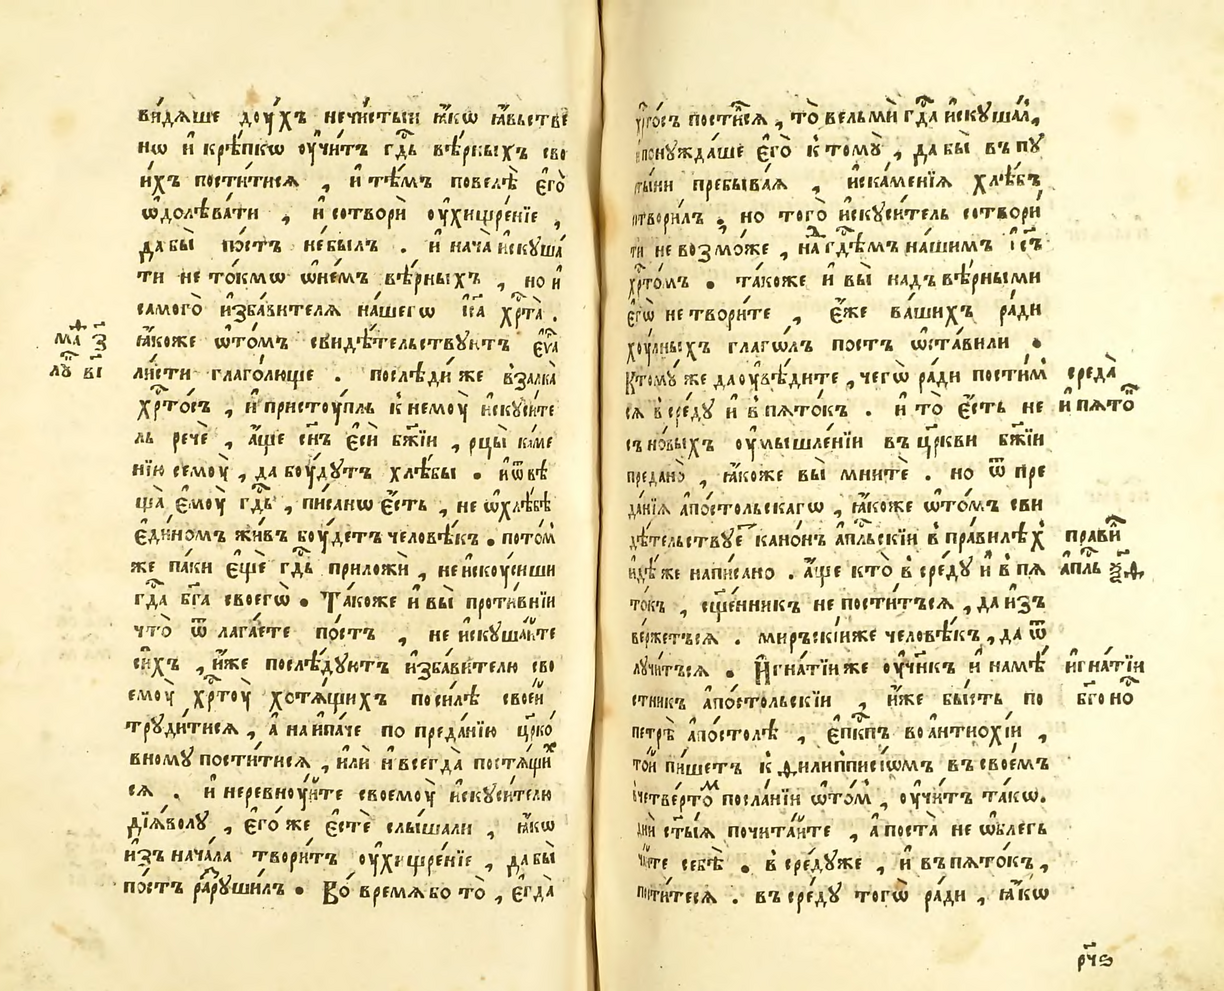 видѧше доу́хъ нечи́стыи ꙗ҆́кѡ ꙗ҆́вьстве
нѡ и҆ крѣ́пкѡ оу҆чи́тъ гдⷭ҇ь вѣ́рныхъ сво
и́хъ пости́тисѧ , и҆ тѣ́мъ повелѣ̀ є҆го̀
ѡ҆долѣва́ти , и҆ сотворѝ оу҆хищре́нїе ,
дабы̀ по́стъ не́былъ . и҆ нача̀ и҆скꙋша́
ти не то́кмѡ ѡ҆не́мъ вѣ́рныхъ , но и҆
самого̀ и҆зба́вителѧ на́шегѡ і҆с҃а хрⷭ҇та̀ .
ꙗ҆́коже ѡ҆то́мъ свидѣ́тельствꙋютъ є҆ѵⷢ҇а
ли́сти глаго́люще . послѣди́ же взалка̀
хрⷭ҇то́съ , и҆ пристоу́пль к немоу̀ и҆скꙋси́те
ль речѐ , а҆́ще сн҃ъ є҆сѝ бж҃їи , рцы̀ ка́ме
нїю семоу̀ , да боу́дꙋтъ хлѣ́бы . и҆ѿвѣ
ща̀ є҆моу̀ гдⷭ҇ь , писанѡ є҆́сть , не ѡ҆хлѣ́бѣ
є҆ди́номъ жи́въ боу́детъ человѣ́къ . пото́м
же па́ки є҆щѐ гдⷭ҇ь приложѝ , не и҆скоу́сиши
гдⷭ҇а бг҃а своегѡ̀ . Та́коже и҆ вы̀ проти́внїи
что̀ ѿ лага́ете по́стъ , не и҆скꙋша́йте
си́хъ , и҆̀же послѣ́дꙋютъ и҆зба́вителю сво
емоу̀ хрⷭ҇тоу̀ хотѧ́щихъ поси́лѣ свое́й
трꙋди́тисѧ , а҆ наипа́че по преда́нїю цр҃ко́
вномꙋ пости́тисѧ , и҆лѝ и҆ всегда̀ постѧ́щих
сѧ . и҆ неревноу́йте своемоу̀ и҆скꙋси́телю
дїѧ́волꙋ , є҆го́же є҆стѐ слы́шали , ꙗ҆́кѡ
и҆зъ нача́ла твори́тъ оу҆хищре́нїе , дабы̀
по́стъ разрꙋши́лъ . Во́ времѧбо то̀ , є҆гда̀
ма́ѳ з҃і
лꙋ̀ в҃і
хрⷭ҇то́съ пости́сѧ , то̀ вельмѝ гдⷭ҇а и҆скꙋша́л,
понꙋжда́ше є҆го̀ к томꙋ̀ , да бы̀ въ пꙋ
сты́ни пребыва́ѧ , и҆ска́менїѧ хлѣ́бъ
сотвори́лъ . но того̀ и҆скꙋси́тель сотворѝ
ти не возмо́же , над гдⷭ҇ѣмъ на́шимъ і҆с҃ъ
хрⷭ҇то́мъ . та́коже и҆ вы̀ надъ вѣ́рными
є҆гѡ̀ не твори́те , є҆́же ва́шихъ ра́ди
хоу́лныхъ глаго́лъ по́стъ ѡ҆ста́вили .
Ктомꙋ́ же да оу҆вѣ́дите , чегѡ̀ ра́ди пости́м
сѧ в сре́дꙋ и҆ в пѧто́къ . и҆ то̀ є҆́сть не
съ но́выхъ оу҆мышле́нїи въ цр҃кви бж҃їи
пре́дано , ꙗ҆́коже вы̀ мнитѐ . но ѿ пре
да́нїѧ а҆по́стольскагѡ , ꙗ҆́коже ѡ҆то́мъ сви
дѣ́тельствꙋет кано́нъ а҆пⷭ҇льскїи в пра́вилѣх
идѣ́же напи́сано . а҆́ще кто̀ в сре́дꙋ и҆ в пѧ
то́къ , сщ҃е́нникъ не пости́тъсѧ , да и҆зъ
ве́ржетъсѧ . мирьскі́иже человѣ́къ , да ѿ
лꙋчи́тьсѧ . И҆гна́тїиже оу҆чн҃къ и҆ намѣ́
стникъ а҆по́стольскїи , и҆́же бы́сть по
петрѣ̀ а҆по́столѣ , є҆пⷭ҇кпъ во а҆нтиохі́и ,
то́й пи́шетъ к філиппи́сїѡмъ въ свое́мъ
четве́ртом посла́нїи ѡ҆то́м , оу҆чи́тъ та́кѡ.
дни̑ ст҃ы́ѧ почита́йте , а҆ поста̀ не ѡ҆блегь
ча́йте себѣ̀ . в сре́дꙋже , и҆ въ пѧто́къ ,
пости́тесѧ . въ сре́дꙋ тогѡ̀ ра́ди , ꙗ҆́кѡ
среда̀
и҆ пѧто́к
прави́л
а҆пл҃ъ ѯ҃ѳ
и҆гна́тїи
бг҃оно́
рч҃ѕ